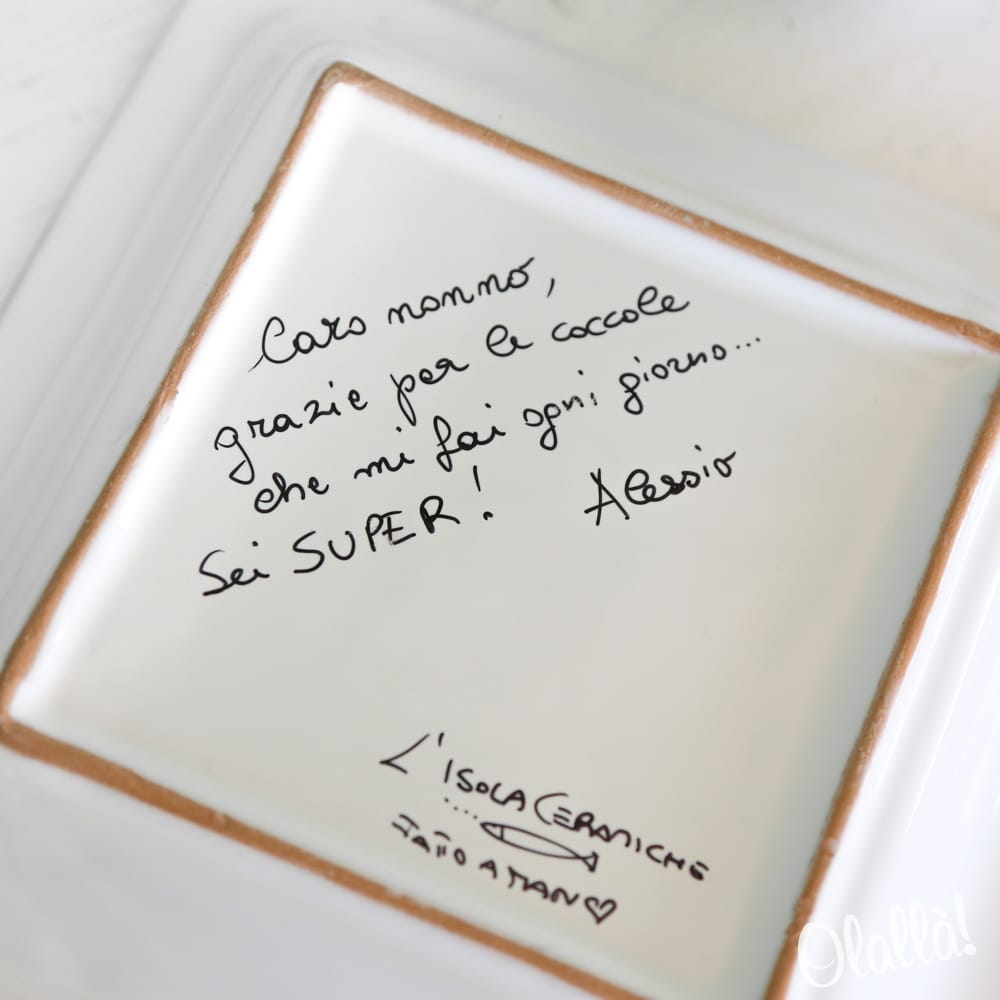 Caro nonno,
grazie per le coccole
che mi fai ogni giorno...
Sei SUPER!
Alessio
L'ISOLA CERAMICHE
FATTO A MANO
Olallà!